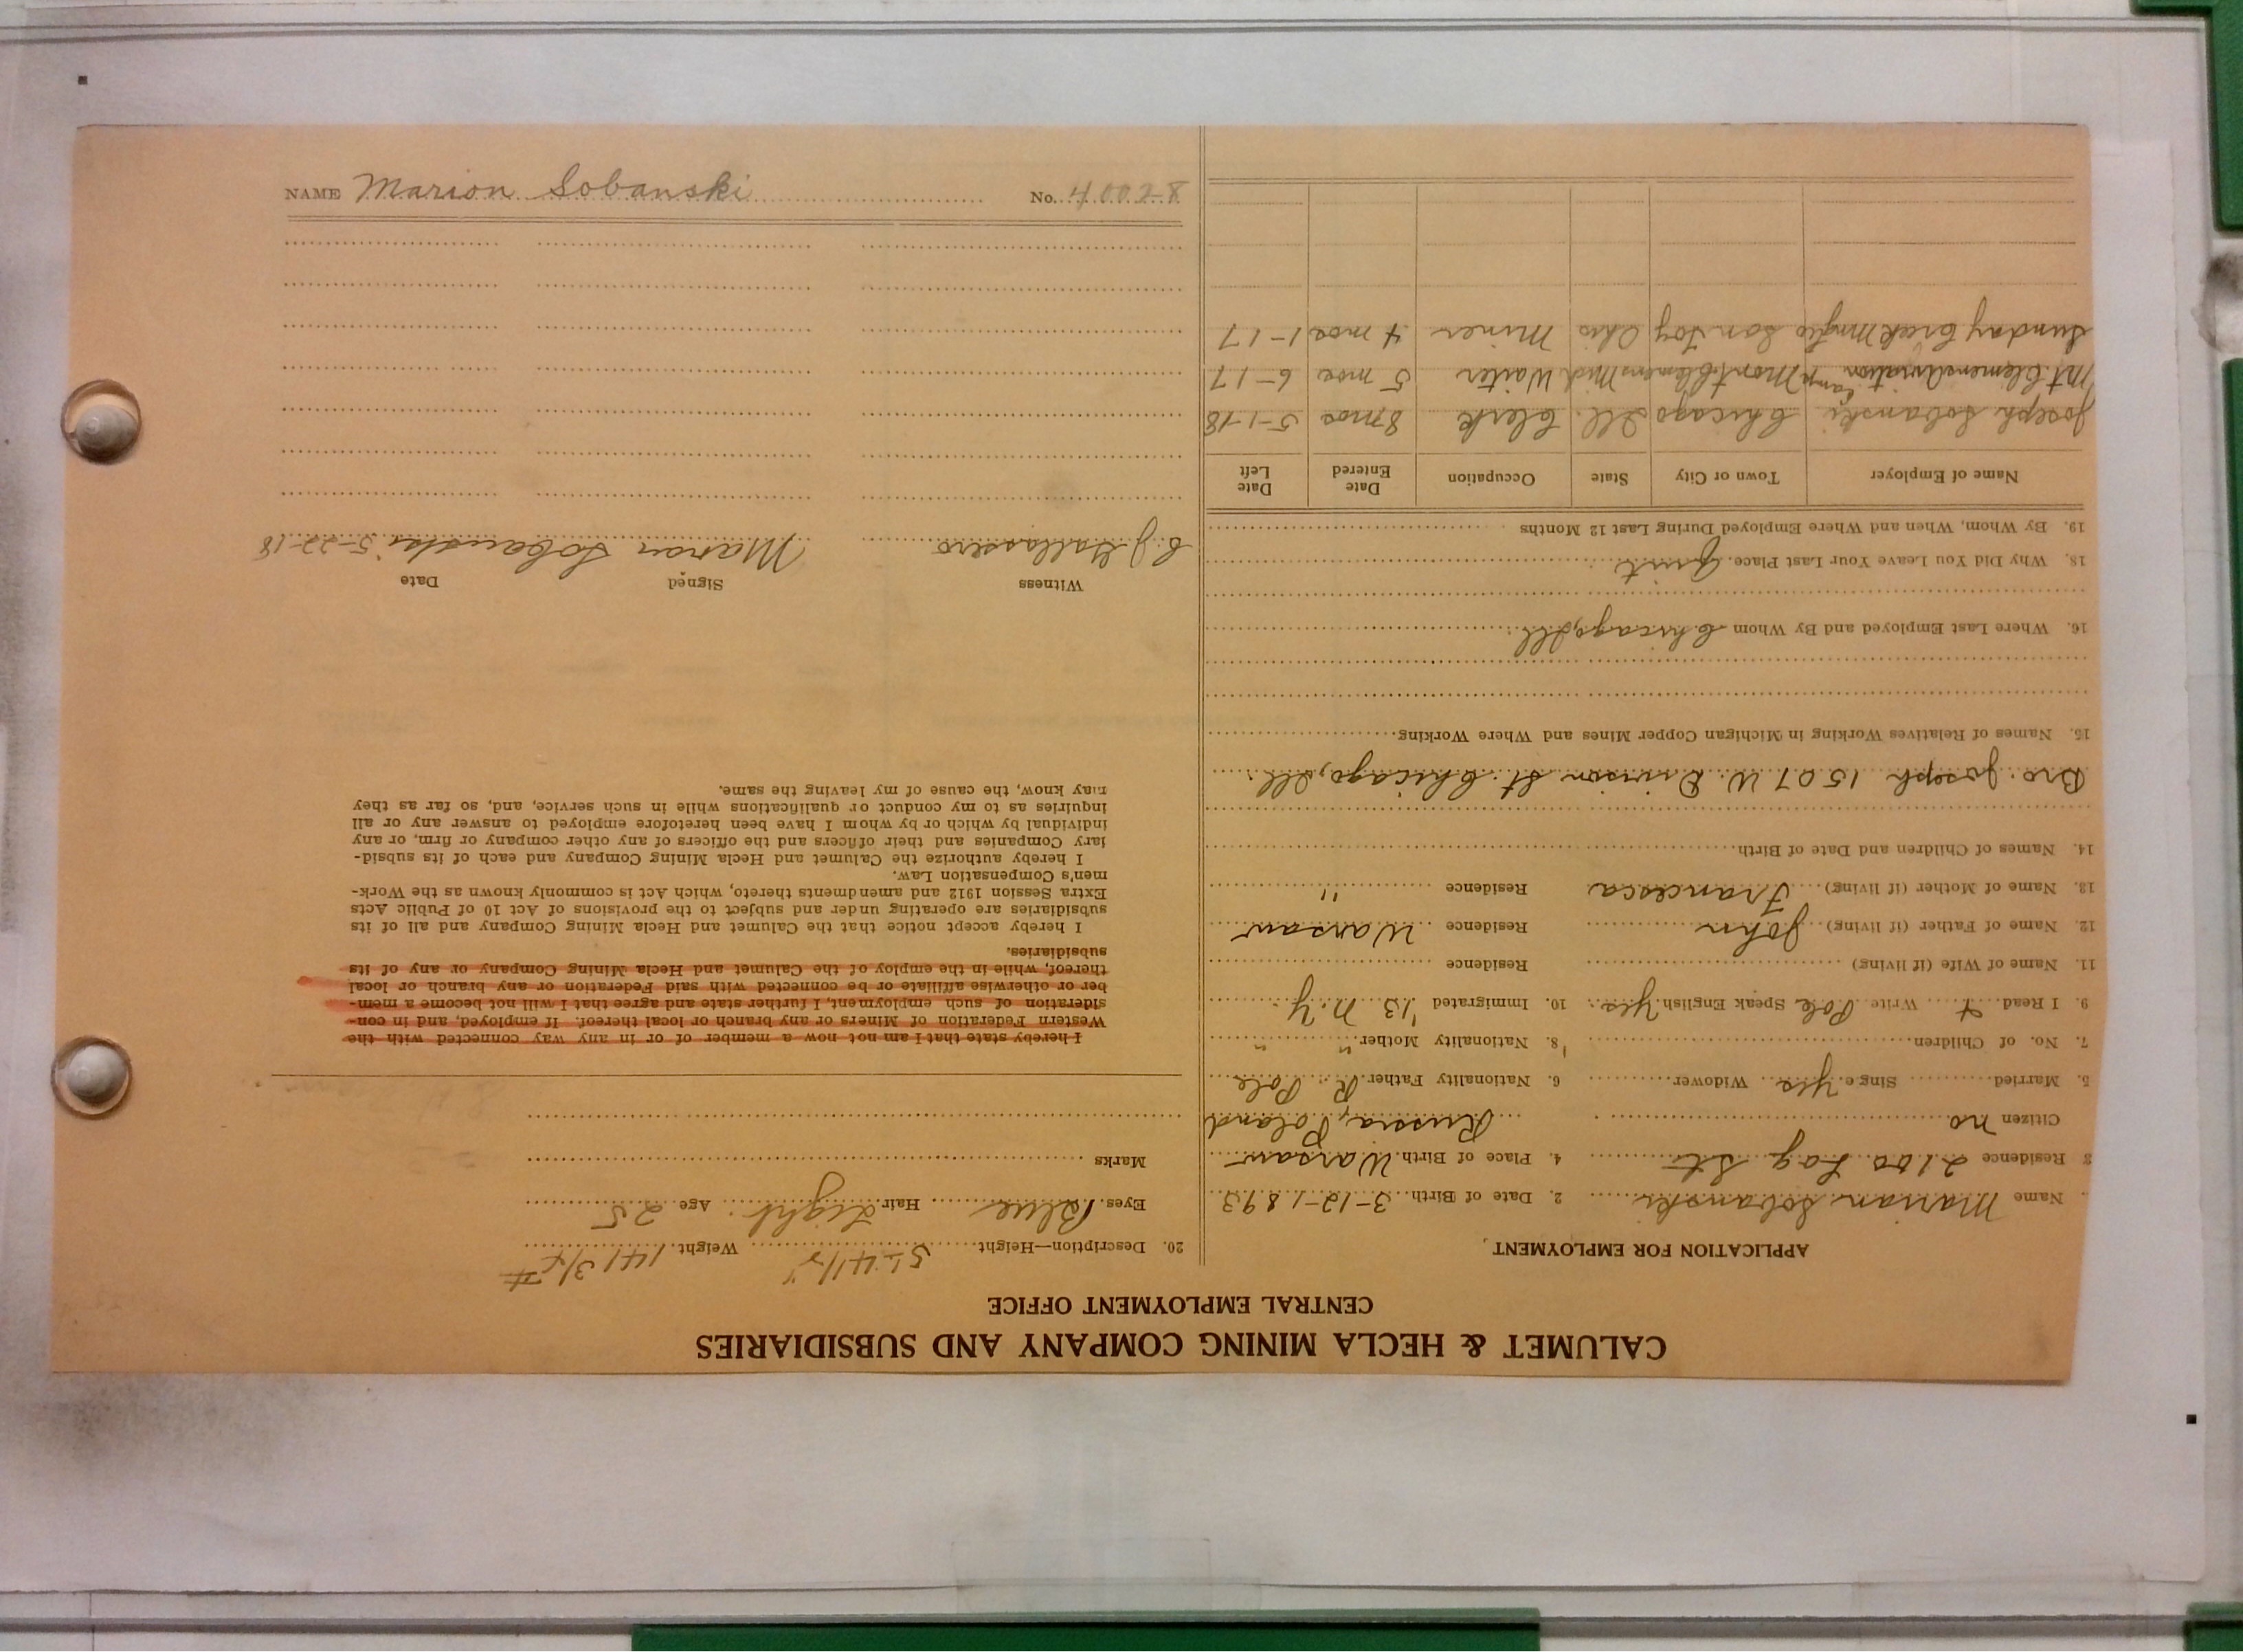 CALUMET & HECLA MINING COMPANY AND SUBSIDIARIES
CENTRAL EMPLOYMENT OFFICE
APPLICATION FOR EMPLOYMENT
Name Marian Sobanski 2. Date of Birth 3-12-1893
3 Residence 2100 Log St. 4. Place of Birth Warsaw
Citizen no Russia, Poland
5. Married Single Yes Widower 6. Nationality Father R. Pole
7. No. of Children 8. Nationality Mother " "
9. I Read + Write Pole Speak English Yes 10. Immigrated '13 N.Y.
11. Name of Wife (if living) Residence
12. Name of Father (if living) John Residence Warsaw
13. Name of Mother (if living) Francesca Residence "
14. Names of Children and Date of Birth
Bro. Joseph 1507 W. Division St. Chicago, Ill.
15. Names of Relatives Working in Michigan Copper Mines and Where Working
16. Where Last Employed and By Whom Chicago, Ill.
18. Why Did You Leave Your Last Place. Quit
19. By Whom, When and Where Employed During Last 12 Months
Name of Employer Town or City State Occupation Date Entered Date Left
Joseph Sobanski Chicago Ill. Clerk 8 mos 5-1-18
Mt. Clemens Aviation Camp Mont Clemens Mich Waiter 5 mos 6-17
Sunday Creek Mng Co San Toy Ohio Miner 4 mos 1-17
20. Description—Height 5-4 1/2" Weight 141 3/4 #
Eyes Blue Hair Light Age 25
Marks
I hereby state that I am not now a member of or in any way connected with the
Western Federation of Miners or any branch or local thereof. If employed, and in con-
sideration of such employment, I further state and agree that I will not become a mem-
ber or otherwise affiliate or be connected with said Federation or any branch or local
thereof, while in the employ of the Calumet and Hecla Mining Company or any of its
subsidiaries.
I hereby accept notice that the Calumet and Hecla Mining Company and all of its
subsidiaries are operating under and subject to the provisions of Act 10 of Public Acts
Extra Session 1912 and amendments thereto, which Act is commonly known as the Work-
men's Compensation Law.
I hereby authorize the Calumet and Hecla Mining Company and each of its subsid-
iary Companies and their officers and the officers of any other company or firm, or any
individual by which or by whom I have been heretofore employed to answer any or all
inquiries as to my conduct or qualifications while in such service, and, so far as they
may know, the cause of my leaving the same.
Witness Signed Date
C. J. Marian Sobanski 5-22-18
NAME Marion Sobanski No. 40028